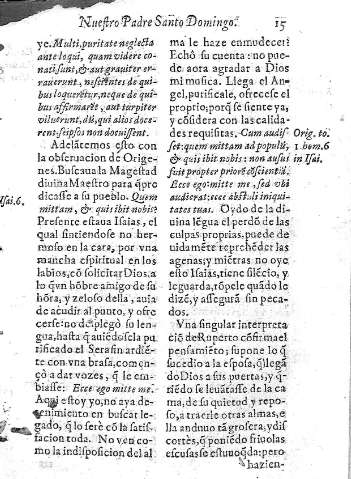 Nuestro Padre Santo Domingo. 15
ye. Multi, puritate neglecta
ante loqui, quam videre co-
nati sunt, & aut graviter er-
raverunt, nescientes de qui-
bus loquerẽtur, neque de qui-
bus affirmarẽt, aut turpiter
viluerunt, dũ, qui alios doce-
rent: seipsos non docuissent.
Adelãtemos esto con
la obseruacion de Orige-
nes. Buscaua la Magestad
diuina Maestro para q̃ pre
dicasse a su pueblo. Quem
mittam, & quis ibit nobis?
Presente estaua Isaias, el
qual sintiendose no her-
moso en la cara, por vna
mancha espiritual en los
labios, cõ solicitar Dios, a
lo q̃ vn hõbre amigo de su
hõra, y zeloso della, auia
de acudir al punto, y ofre
cerse: no desplegò su len-
gua, hasta q̃ auiẽdosela pu
rificado el Serafin ardiẽ-
te con vna brasa, comen-
çò a dar vozes, q̃ le em
biasse: Ecce ego mitte me.
Aqui estoy yo, no aya de-
tenimiento en buscar le-
gado, q̃ lo serè cõ la satis-
facion toda. No ven co-
mo la indisposicion del al
Isai. 6.
ma le haze enmudecer?
Echò su cuenta: no pue-
de aora agradar a Dios
mi mosica. Llega el An-
gel, purificale, ofrecese el
proprio; porq̃ se siente ya,
y cõsidera con las calida-
des requisitas. Cum audis-
set: quem mittam ad populũ,
& quis ibit nobis: non ausus
fuit propter priorẽ cõscientiã
Ecce ego mitte me, sed vbi
audierat; ecce abstuli iniqui-
tates tuas. Oydo de la di-
uina lẽgua el perdõ de las
culpas proprias, puede de
uidamẽte reprehẽder las
agenas; y miẽtras no oye
esto Isaias, tiene silẽcio, y
le guarda, rõpele quãdo le
dizẽ, y assegurã sin peca-
dos.
Vna singular interpreta
ciõ de Ruperto cõfirma el
pensamiẽto; supone lo q̃
sucedio a la esposa, q̃ llegã
do Dios a sus puertas, y q̃
riẽdo se leuãtasse de la ca
ma, de su quietud y repo-
so, a traerle otras almas, e
lla anduuo tã grosera, y dis
cortès, q̃ poniẽdo friuolas
escusas se estuuo q̃da: pero
hazien-
Orig. to.
1 hom. 6
in Isai.